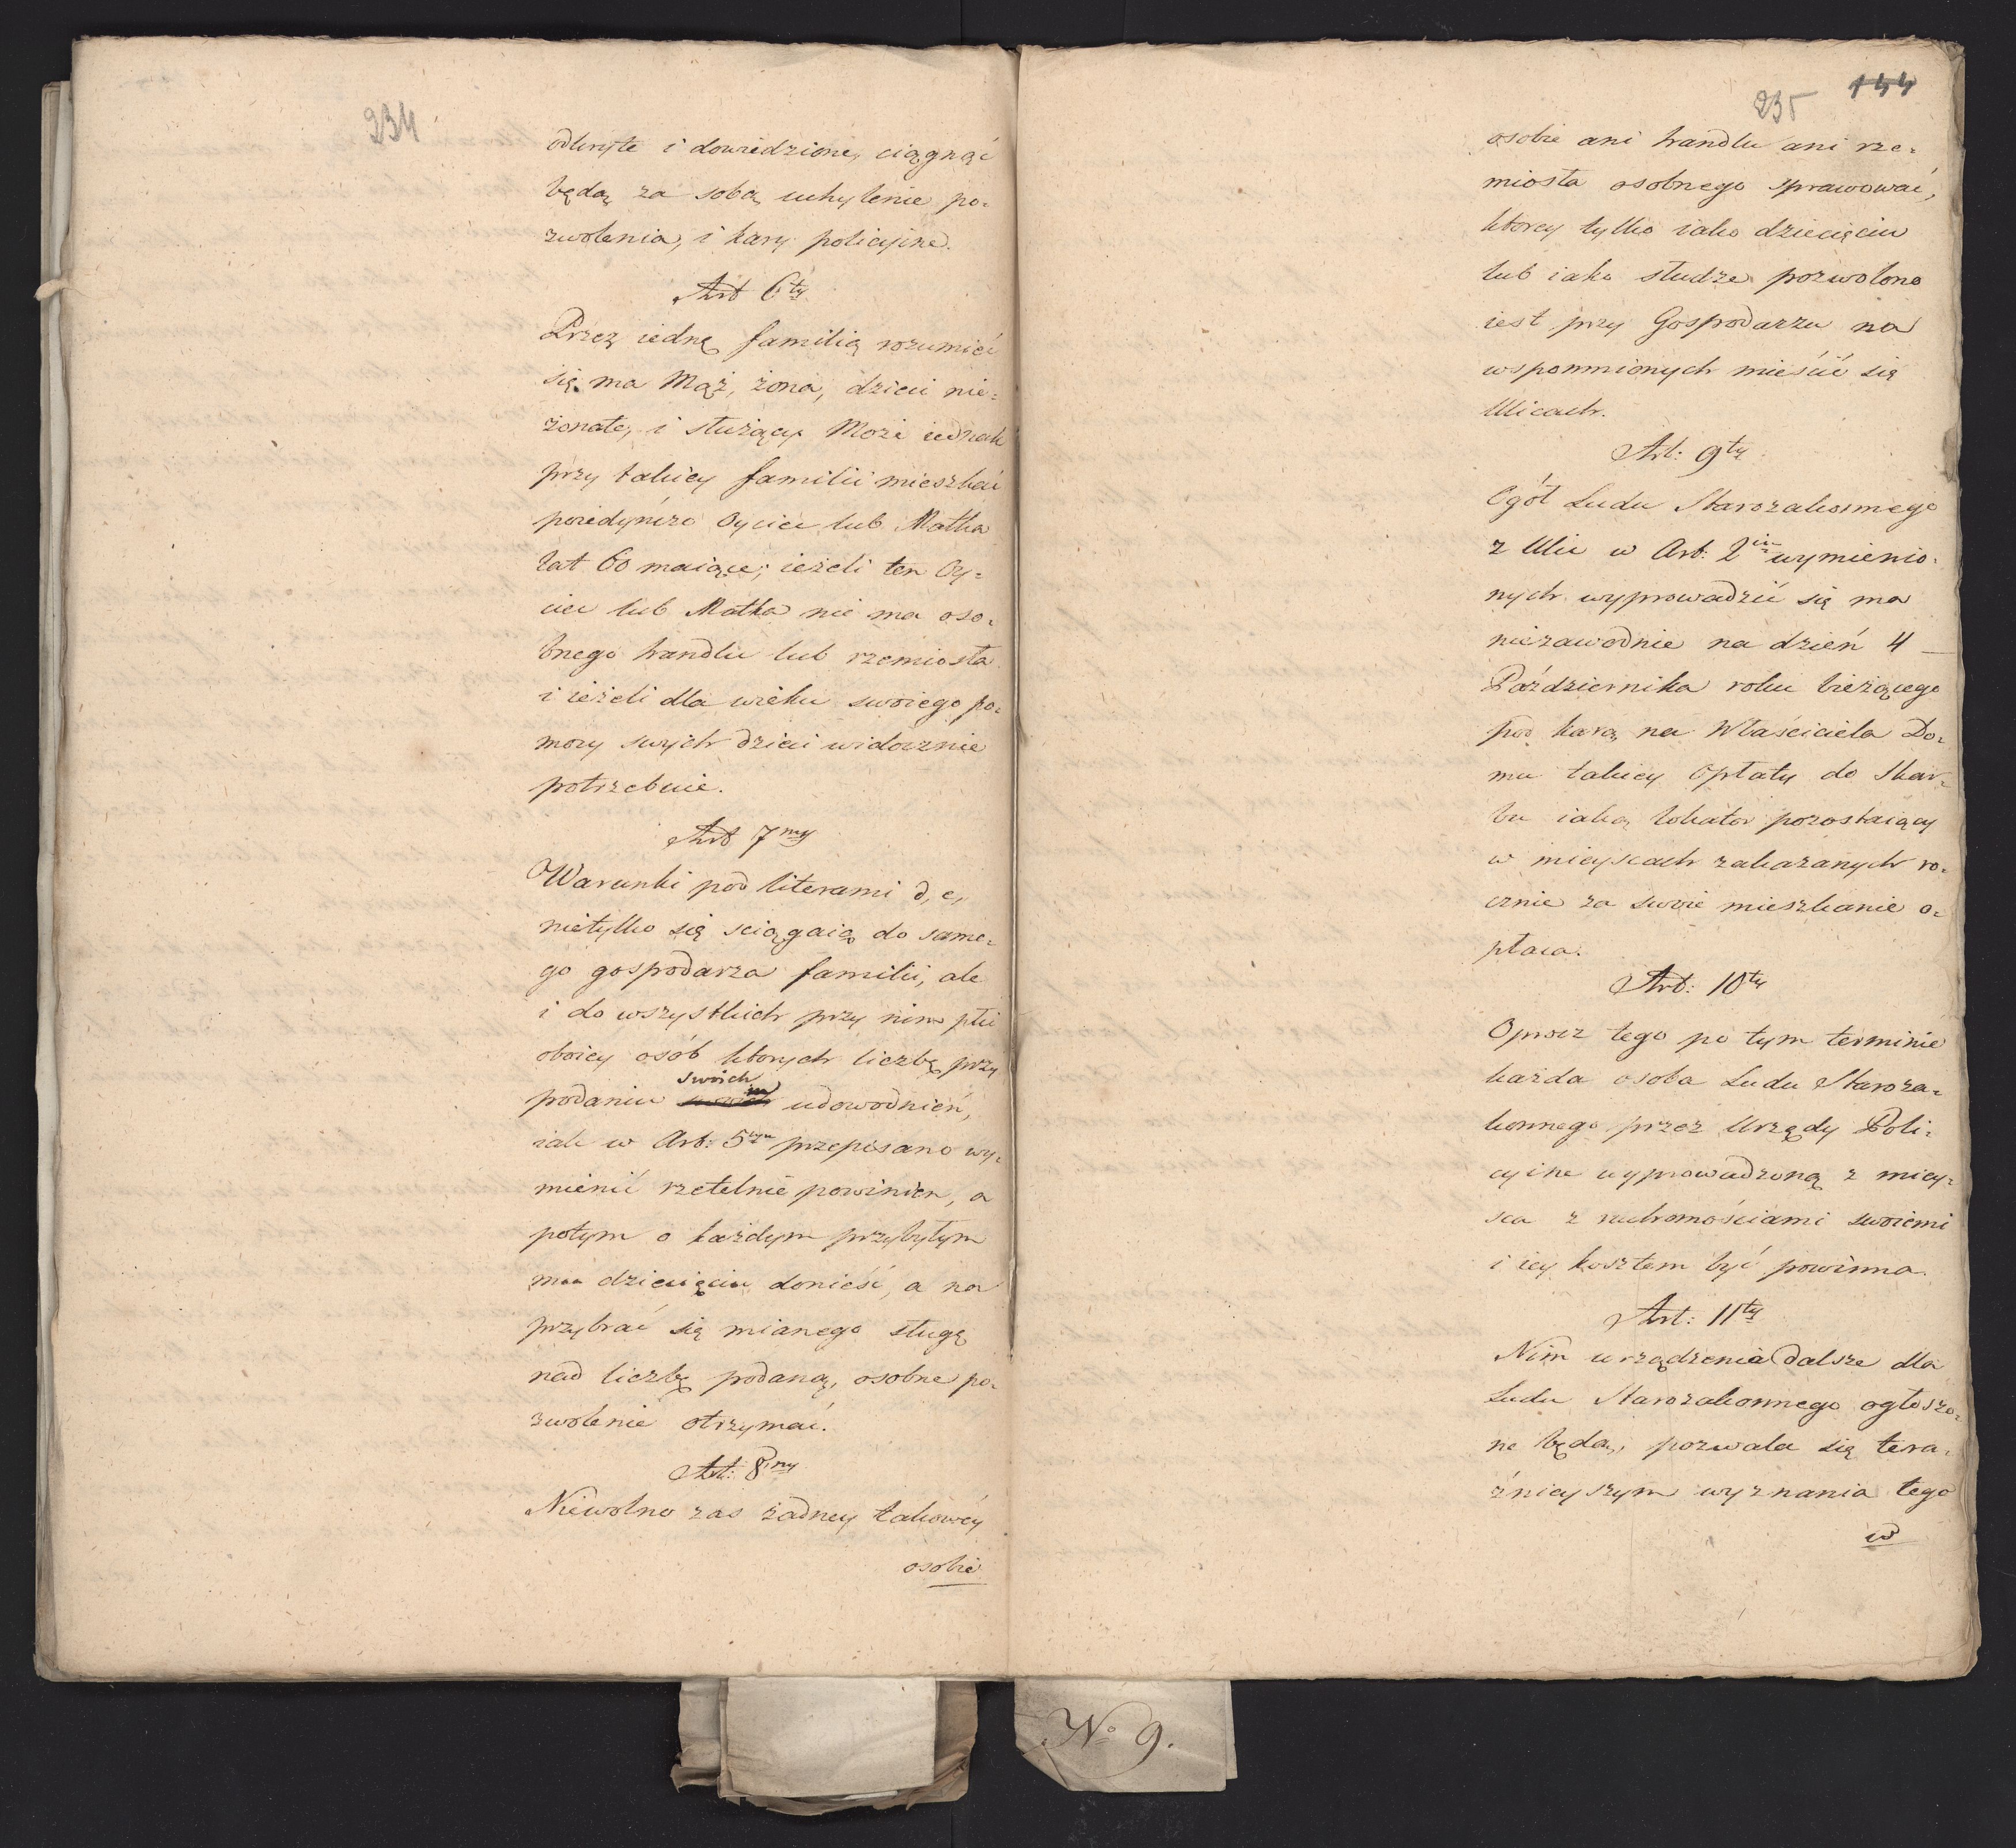 234
odkryte i dowiedzione, ciągnąć
będą za sobą uchylenie po-
zwolenia, i kary policyine.
Art 6ty
Przez iedną familią rozumieć
się ma Mąż, żona, dzieci nie-
żonate, i służący. Może iednak
przy takiey familii mieszkać
poiedyńczo Oyciec lub Matka
lat 60 maiące; ieżeli ten Oy-
ciec lub Matka nie ma oso-
bnego handlu lub rzemiosła
i ieżeli dla wieku swoiego po-
mocy swych dzieci widocznie
potrzebuie.
Art 7my
Warunki pod literami d, e,
nietylko się sciągaią do same-
go gospodarza familii, ale
i do wszystkich przy nim płci
oboiey osób ktorych liczbę przy
swoich
podaniu udowodnień,
iak w Art: 5tym przepisano wy-
mienić rzetelnie powinien, a
potym o każdym przybytym
mu dziecięciu donieść, a na
przybrać się mianego sługę
nad liczbę podaną, osobne po-
zwolenie otrzymać.
Art: 8my
Niewolno zas żadney takowéy
osobie
144
235
osobie ani handlu ani rze-
miosła osobnego sprawować,
ktorey tylko iako dziecięciu
lub iako słudze pozwolono
iest przy Gospodarzu na
wspomnionych mieścić się
Ulicach.
Art: 9ty
Ogół Ludu Starozakonnego
z Ulic w Art: 2im wymienio-
nych wyprowadzić się ma
niezawodnie na dzień 4
Października roku bieżącego
pod karą na Właściciela Do-
mu takiey Opłaty do Skar-
bu iaką lokator pozostaiący
w mieyscach zakazanych ro-
cznie za swoie mieszkanie o-
płaca.
Art: 10ty
Oprocz tego po tym terminie
każda osoba Ludu Staroza-
konnego przez Urzędy Poli-
cyine wyprowadzoną z miey-
sca z ruchomościami swoiemi
i iey kosztem być powinna.
Art: 11ty
Nim urządzenia dalsze dla
Ludu Starozakonnego ogłoszo-
ne będą, pozwala się tera-
źnieyszym wyznania tego
w
No 9.